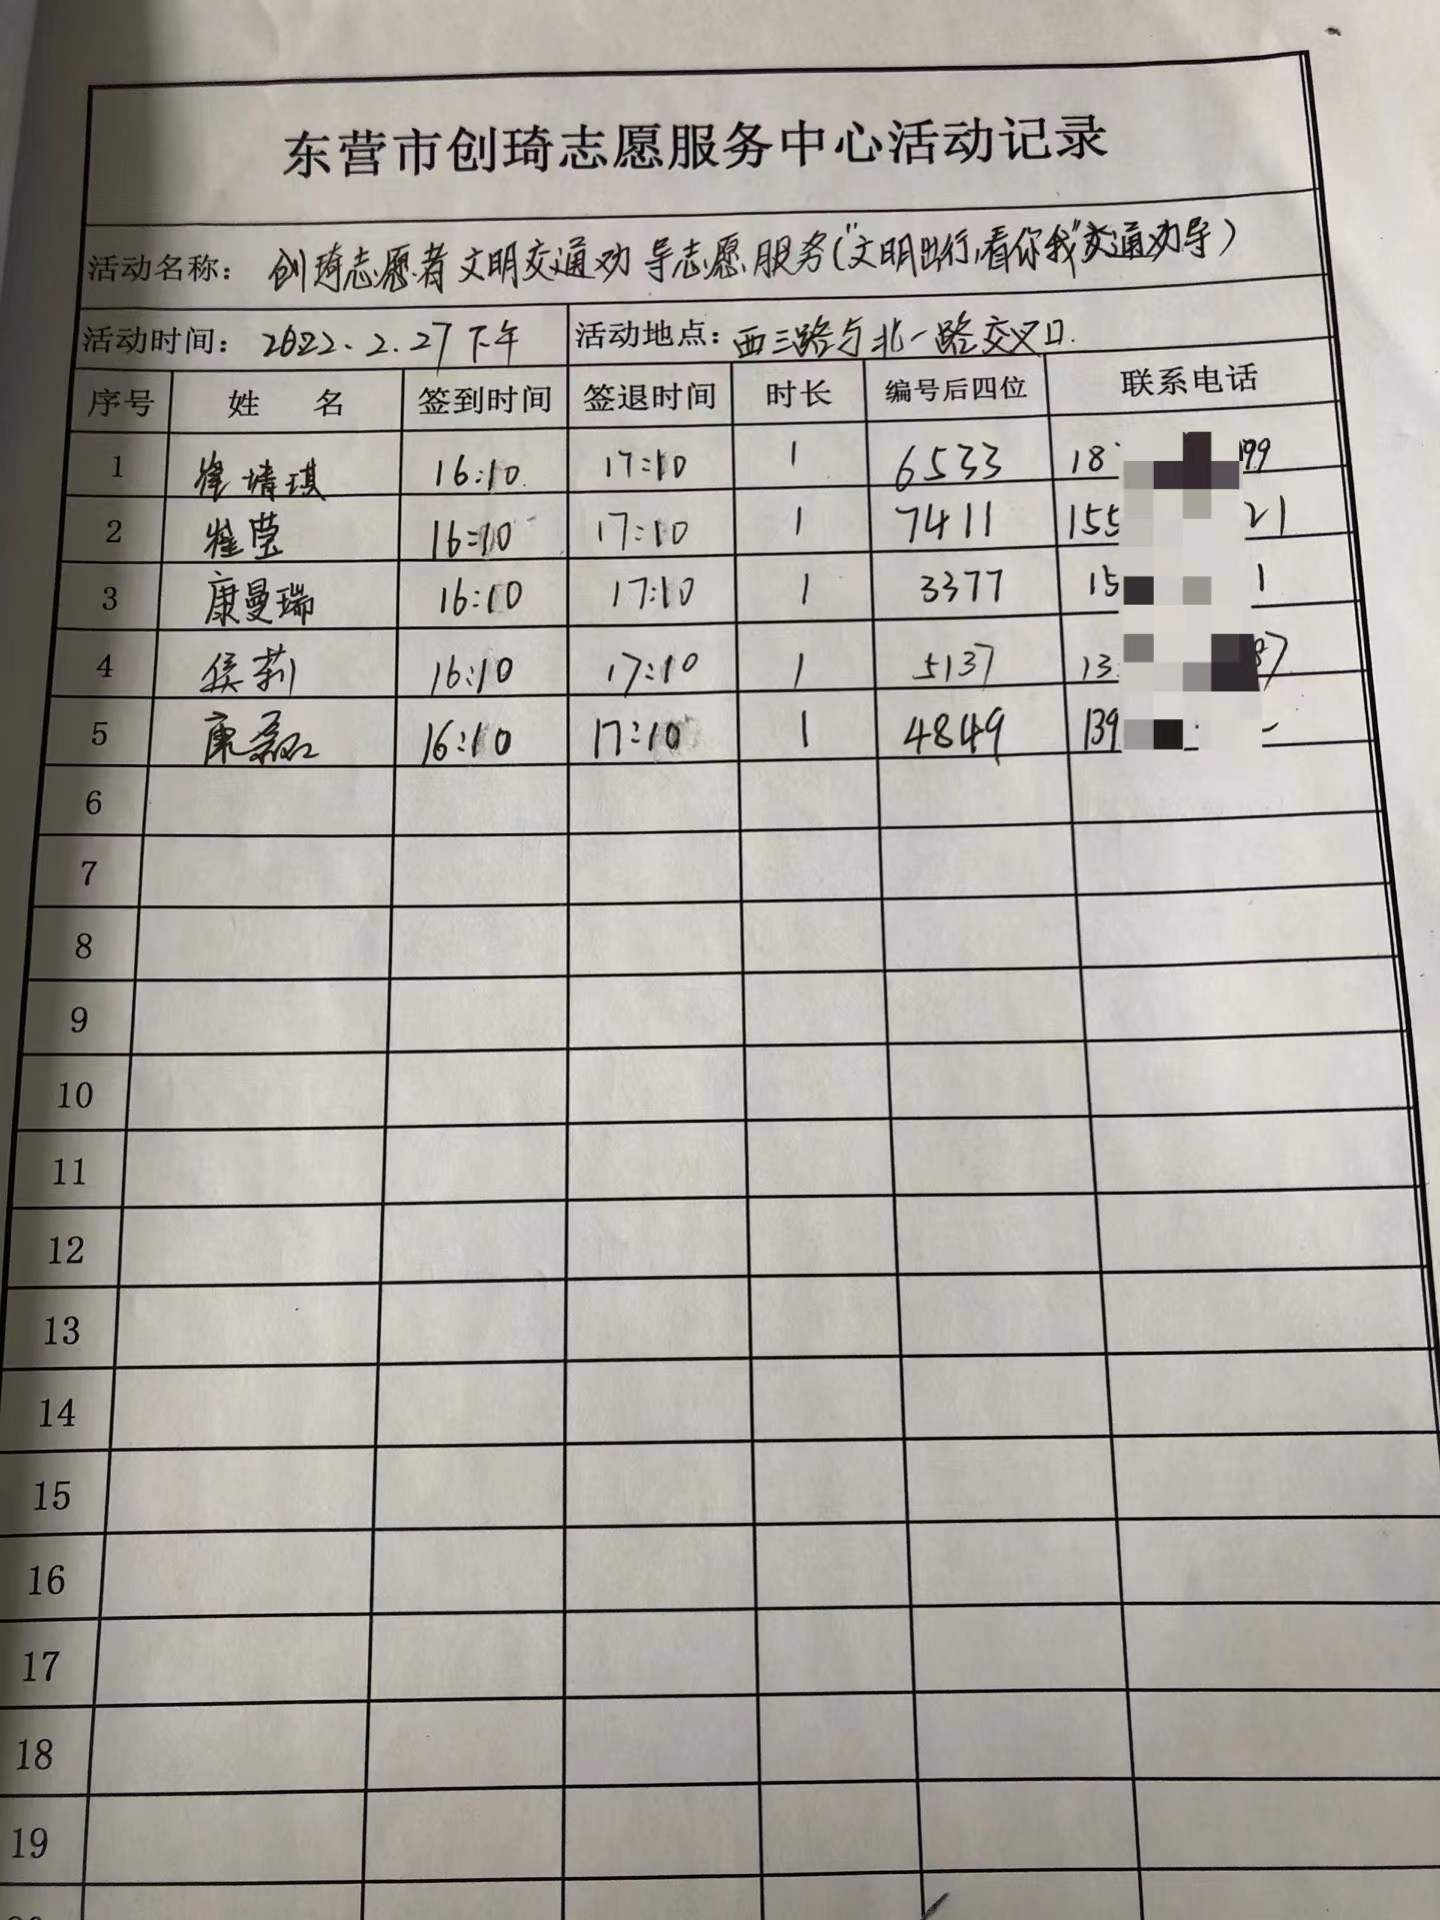 东营市创琦志愿服务中心活动记录
活动名称：创琦志愿者文明交通劝导志愿服务（“文明出行，看你我”交通劝导）
活动时间：2022.2.27下午 活动地点：西三路与北一路交叉口.
序号 姓 名 签到时间 签退时间 时长 编号后四位 联系电话
1 崔靖琪 16:10 17:10 1 6533 18 99
2 崔莹 16:10 17:10 1 7411 155 21
3 康曼瑞 16:10 17:10 1 3377 15 1
4 侯莉 16:10 17:10 1 5137 13 87
5 康磊 16:10 17:10 1 4849 139
6
7
8
9
10
11
12
13
14
15
16
17
18
19